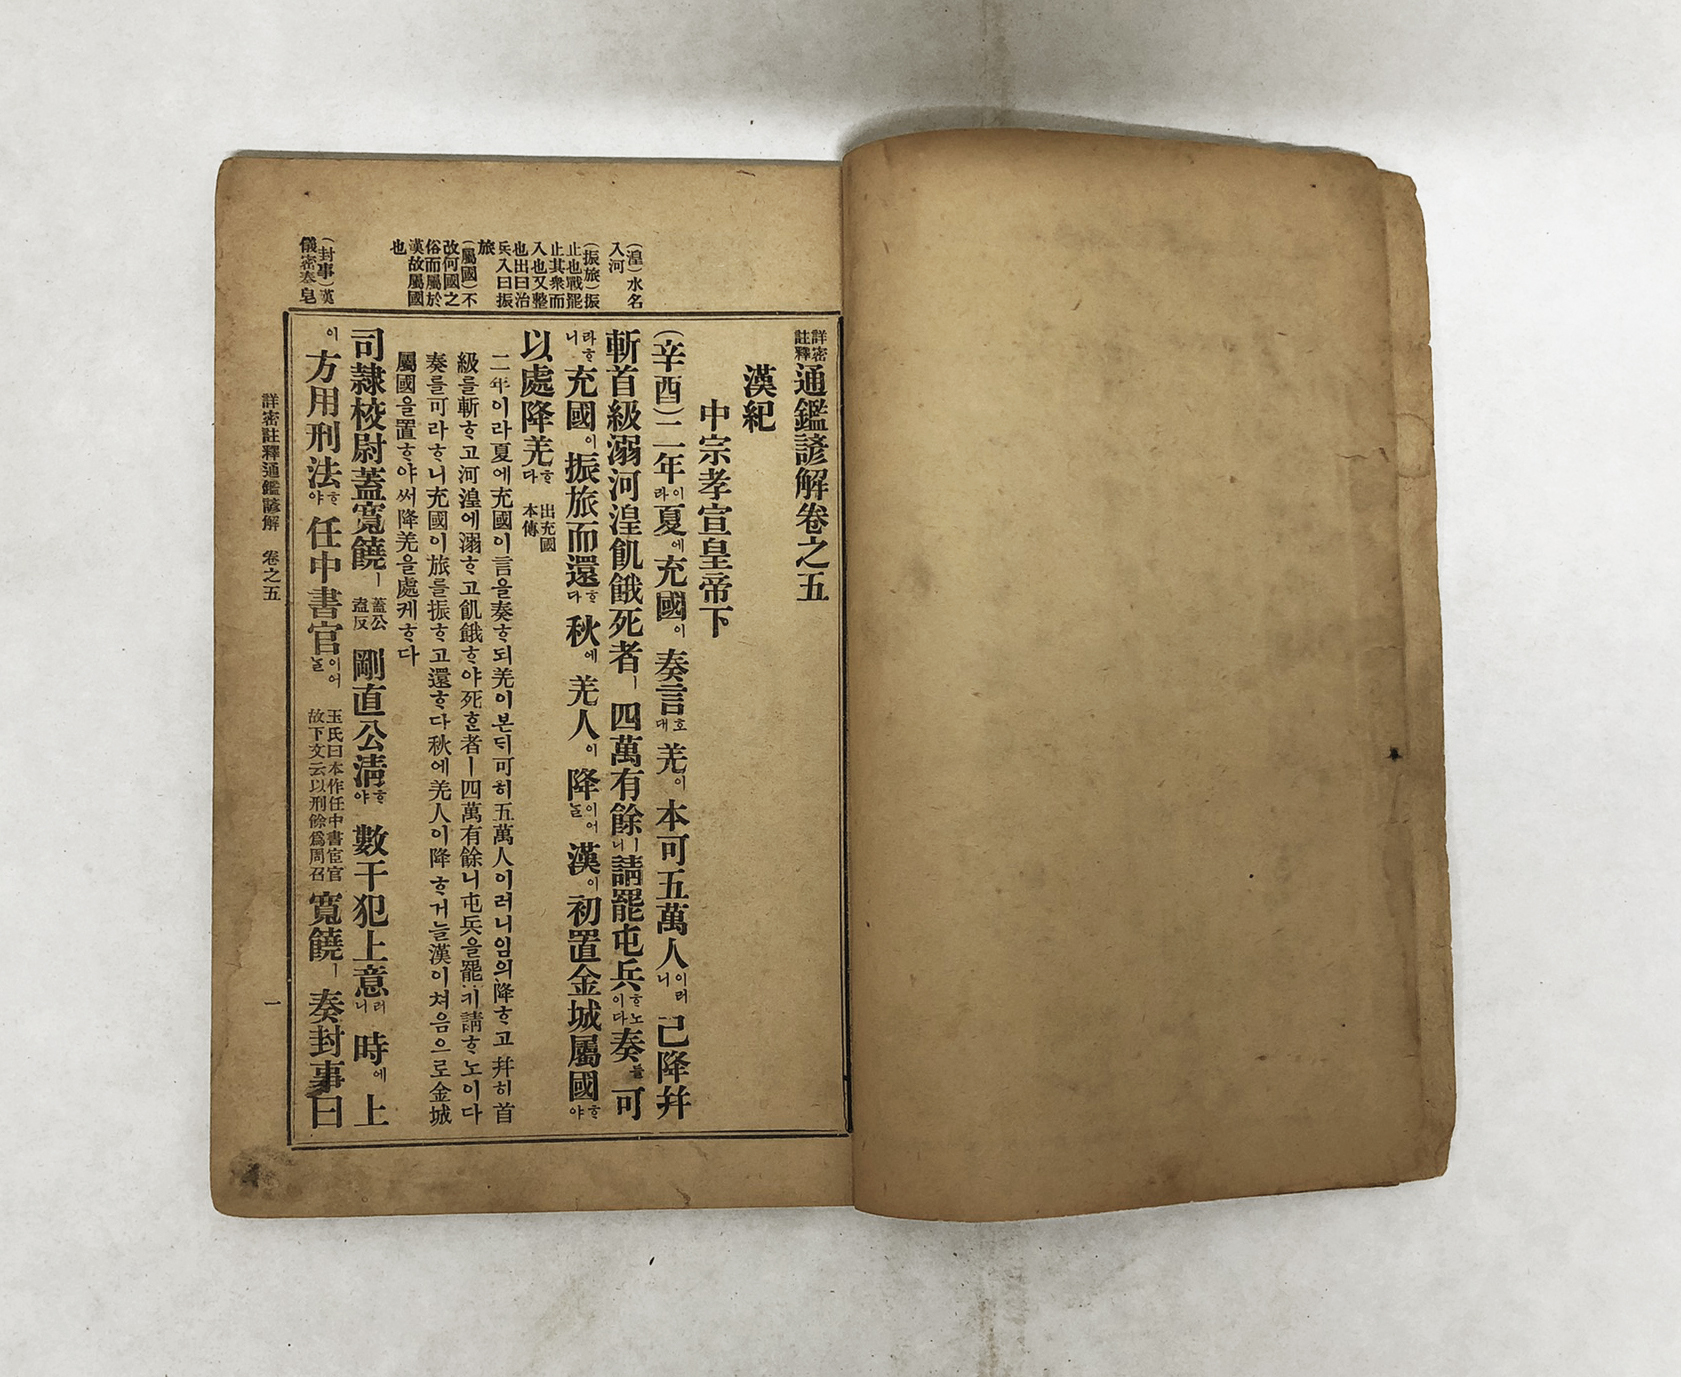 詳密註釋通鑑諺解卷之五
漢紀
中宗孝宣皇帝下
(辛酉)二年이라夏에充國이奏言호대羌이本可五萬人이러니己降幷
斬首級溺河湟飢餓死者ㅣ四萬有餘ㅣ니請罷屯兵ᄒᆞ노이다奏를可
라ᄒᆞ니充國이振旅而還ᄒᆞ다秋에羌人이降이어ᄂᆞᆯ漢이初置金城屬國ᄒᆞ야
以處降羌ᄒᆞ다出充國本傳
二年이라夏에充國이言을奏ᄒᆞ되羌이본ᄃᆡ可히五萬人이러니임의降ᄒᆞ고幷히首
級를斬ᄒᆞ고河湟에溺ᄒᆞ고飢餓ᄒᆞ야死ᄒᆞᆫ者ㅣ四萬有餘니屯兵을罷기請ᄒᆞ노이다
奏를可라ᄒᆞ니充國이旅를振ᄒᆞ고還ᄒᆞ다秋에羌人이降ᄒᆞ거늘漢이쳐음으로金城
屬國을置ᄒᆞ야써降羌을處케ᄒᆞ다
司隷校尉蓋寬饒ㅣ蓋公盍反剛直公淸ᄒᆞ야數干犯上意러니時에上
이方用刑法ᄒᆞ야任中書官이어ᄂᆞᆯ玉氏曰本作任中書宦官故下文云以刑餘爲周召寬饒ㅣ奏封事曰
(湟)水名
入河
(振旅)振
止也戰罷
止其衆而
入也又整
也出曰治
兵入曰振
旅
(屬國)不
改何國之
俗而屬於
漢故屬國
也
(封事)漢
儀密奏皂
詳密註釋通鑑諺解 卷之五 一